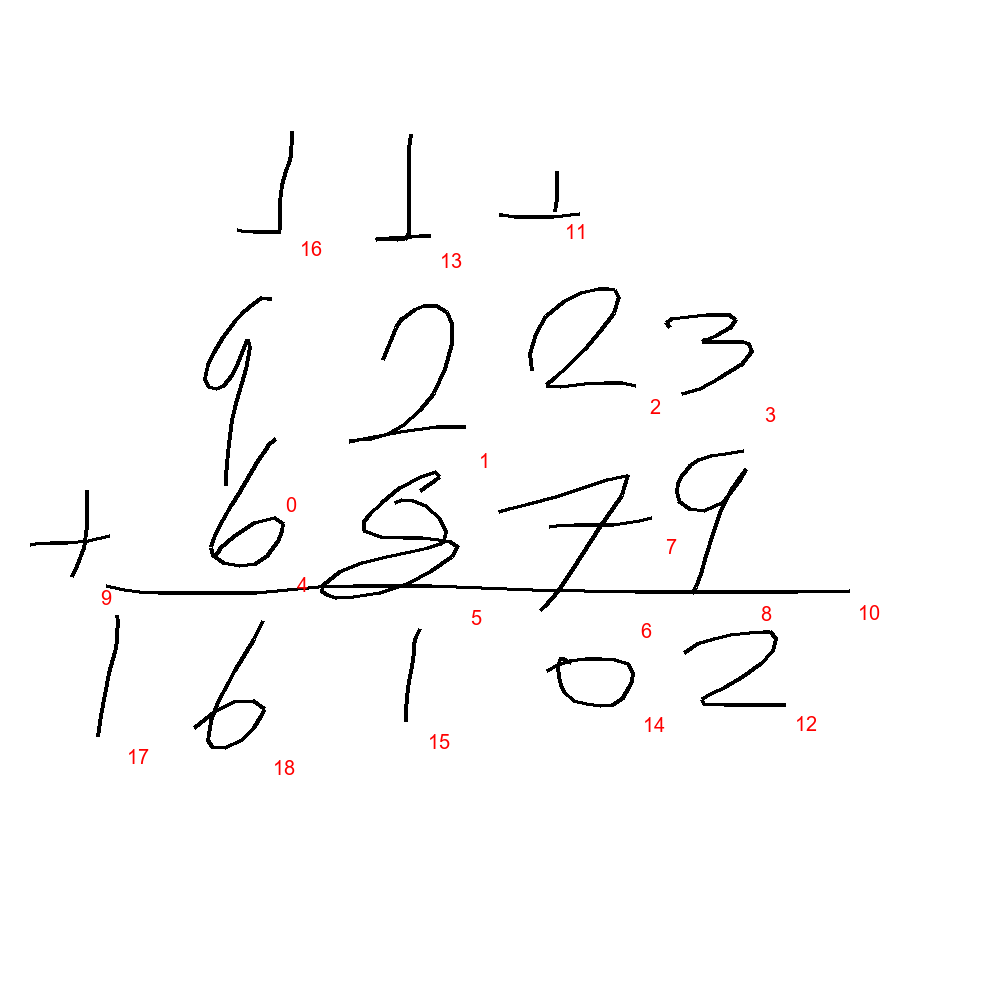 1 1 1
16 13 11
9 2 2 3
0 1 2 3
+ 6 8 7 9
9 4 5 6 7 8 10
1 6 1 0 2
17 18 15 14 12